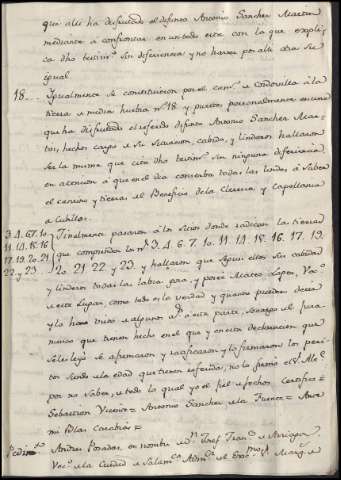 que alli ha disfrutado el difunto Antonio Sanchez Martin
mediante a confrontar en un todo este con lo que expli-
ca dho testim.º sin diferencia y no haver por alli otra su
igual
18... Igualmente se constituieron por el cam.º de Cordovilla à la
tierra de media huebra nº 18. y puestos personalmente en una
que ha disfrutado el referido difunto Antonio Sanchez Mar-
tin, hechos cargo de su situacion, cabida, y linderos hallaron
ser la misma que cita dho testim.º sin ninguna diferiencia,
en atencion à que en el dia conserba todas las lindes à saber
el camino y tierras del Beneficio de la Clerecia y Capellania
de Cubillo.
3.4.6.7.10. Finalmente pasaron à los sitios donde radican las tierras
11.14.15.16 que comprenden los nº.s 3. 4. 6. 7. 10. 11. 14. 15. 16. 17. 19.
17.19.20.21 20. 21. 22 y 23. y hallaron que segun ellos sus cabidas
22 y 23. y linderos todas las labra, goza, y posee Mateo Lopez, Vec.º
de este Lugar, como todo es la verdad y quanto pueden decir
y lo han visto de algunos a.s à esta parte, so cargo el jura-
mento que tienen hecho en el que y en esta declaracion que
se les leyò se afirmaron y ratificaron y lo firmaron los peri-
tos siendo de la edad que tienen referida, no lo firmò el S.r Alc.e
por no saber, de todo lo qual yo el fiel de fechos Certifico =
Sebastian Vicente = Antonio Sanchez de la Fuente = Ante
mi Blas
Pedim.to Andres Posadas, en nombre de D.n Josef Fran.co de
Vec.º de la Ciudad de Salam.ca Adm.or del Exc.mo S.or Marq.s de